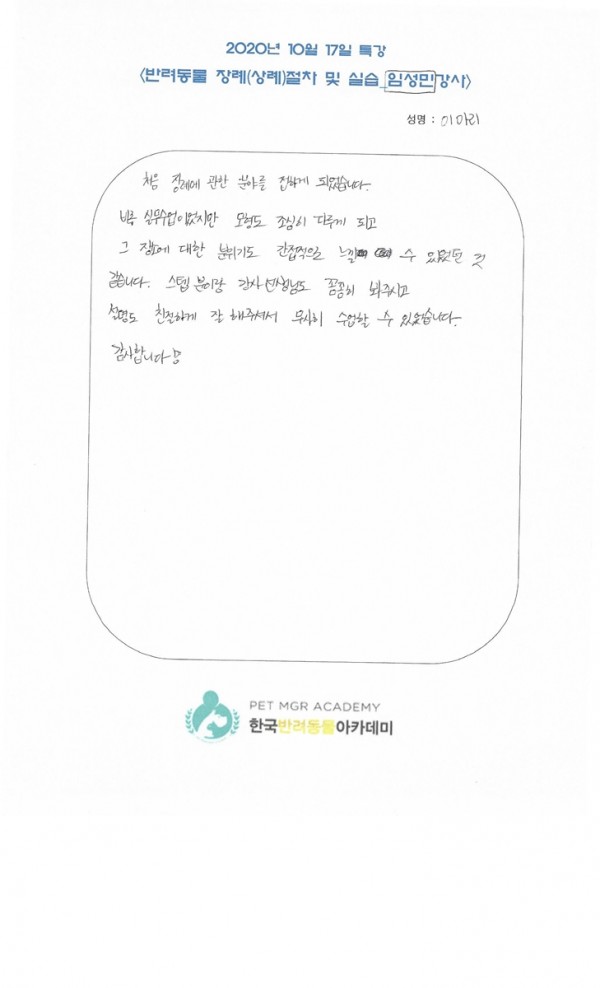 2020년 10월 17일 특강
<반려동물 장례(상례)절차 및 실습_임성민강사>
성명 : 이아리
처음 장례에 관반 분야를 접하게 되었습니다.
비록 실무수업이었지만 모형도 조심히 다루게 되고
그 장례에 대한 분위기도 간접적으로 느낄 수 있었던 것
같습니다. 스텝 분이랑 강사선생님도 꼼꼼히 봐주시고
설명도 친절하게 잘 해주셔서 무사히 수업할 수 있었습니다.
감사합니다
PET MGR ACADEMY
한국반려동물아카데미